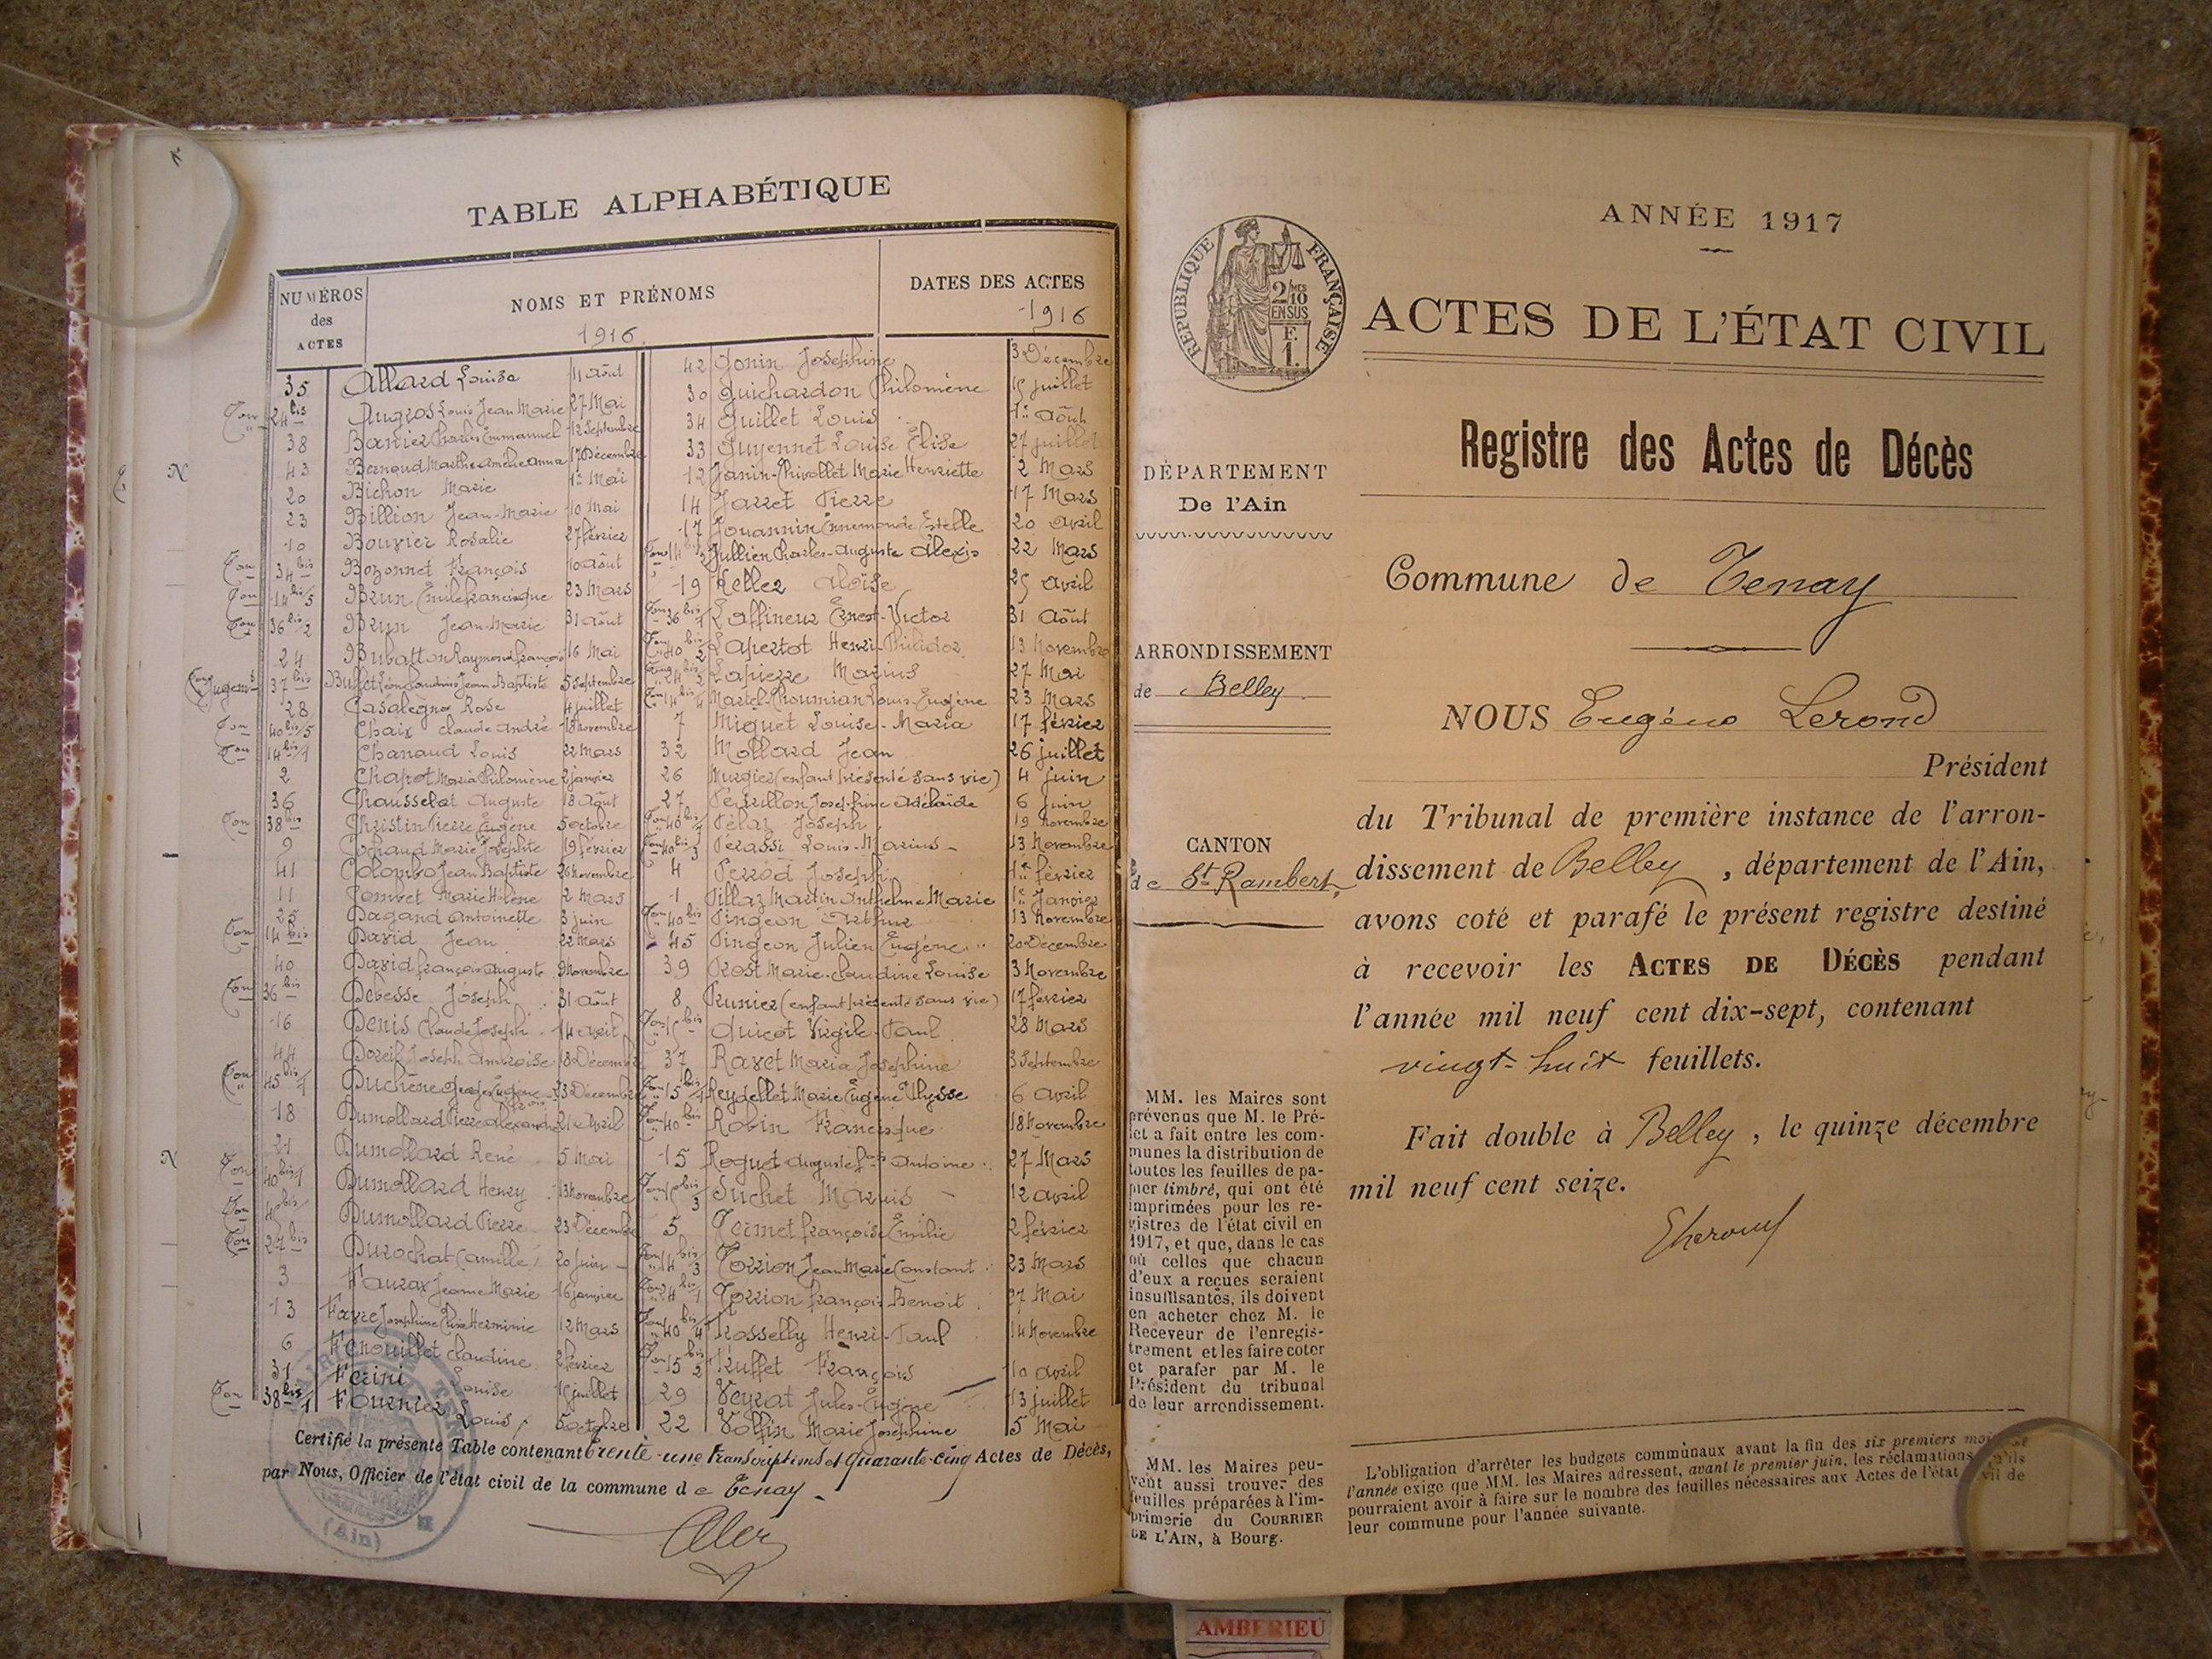 TABLE ALPHABÉTIQUE
NUMÉROS des ACTES
NOMS ET PRÉNOMS 1916
DATES DES ACTES 1916
35 Allard Louise 11 août
Ton 24 bis Augros Louis Jean Marie 27 Mai
38 Banier Charles Emmanuel 12 Septembre
43 Bernaud Marthe Amélie Anna 17 Décembre
20 Bichon Marie 1er Mai
23 Billion Jean-Marie 10 Mai
10 Bouvier Rosalie 27 février
Ton 34 bis Bozonnet François 10 août
Ton 14 bis/5 Brun Emile francisque 23 Mars
Ton 36 bis/2 Brun Jean-Marie 31 août
24 Raymond françois 16 Mai
37 bis Jean Baptiste 5 Septembre
28 Casalegno Rose 4 juillet
Ton 40 bis/5 Chaix Claude André 18 Novembre
Ton 14 bis/1 Chanaud Louis 22 Mars
2 Chapot Maria Philomène 2 janvier
36 Chausselat Auguste 18 Août
Ton 38 bis Christin Pierre Eugène 5 octobre
9 Cochaud Marie Josephte 19 février
41 Colombo Jean Baptiste 26 Novembre
11 Marie Hélène 2 Mars
25 Dagand Antoinette 3 juin
Ton 14 bis David Jean 22 Mars
40 David françois auguste 9 Novembre
Ton 36 bis Debesse Joseph 31 Août
16 Denis Claude Joseph 14 avril
44 Joseph Ambroise 18 Décembre
Ton 45 bis/1 Duchêne Eugène 23 Décembre
18 Dumollard Pierre Alexandre 21 Avril
21 Dumollard René 5 Mai
Ton 40 bis/1 Dumollard Henry 13 Novembre
Ton bis Dumollard Pierre 23 Décembre
Ton 27 bis Durochat Camille 20 juin
3 Faurax Jeanne Marie 16 janvier
13 Favre Josephine Herminie 12 Mars
6 Fenouillet Claudine 2 février
31 Ferini Louise 15 juillet
Ton 38 bis/1 Fournier Louis 5 octobre
42 Gonin Josephine 3 Décembre
30 Guichardon Philomène 15 juillet
34 Guillet Louis 1er Août
33 Guyennet Louise Élise 27 juillet
12 Janin-Thivollet Marie Henriette 2 Mars
14 Jarret Pierre 17 Mars
17 Jouannin Ennemonde Estelle 20 avril
Ton 14 bis/2 Jullien Charles-Auguste Alexis 22 Mars
19 Keller Aloïse 25 avril
Ton 36 bis/1 Laffineur Ernest-Victor 31 Août
Ton 40 bis/2 Lapertot Henri-Philidor 13 Novembre
Ton 24 bis/2 Lapierre Marius 27 Mai
Ton 14 bis/4 Martel-Thoumian Louis-Eugène 23 Mars
7 Miguet Louise-Maria 17 février
32 Mollard Jean 26 juillet
26 Murgier (enfant présenté sans vie) 4 juin
27 Perrillon Josephine Adélaïde 6 juin
Ton 40 bis/7 Pélaz Joseph 19 Novembre
Ton 40 bis/3 Perassi Louis-Marius 13 Novembre
4 Perrod Joseph 1er février
1 Pillaz Martin Anthelme Marie 1er Janvier
Ton 40 bis Pingeon Arthur 13 Novembre
45 Pingeon Julien Eugène 20 Décembre
39 Prost Marie-Claudine Louise 3 Novembre
8 Prunier (enfant présenté sans vie) 17 février
Ton 15 bis Quicot Virgile-Paul 28 Mars
37 Ravet Maria Josephine 3 Septembre
Ton 15 bis/1 Reydellet Marie Eugène Ulysse 6 avril
Ton 40 bis Robin Francisque 18 Novembre
15 Roguet Auguste Antoine 27 Mars
Ton 15 bis/3 Suchet Marius 12 avril
5 Termet françoise Emilie 2 février
Ton 14 bis/3 Torrion Jean Marie Constant 23 Mars
Ton 24 bis/1 Torrion françois Benoit 27 Mai
Ton 40 bis/4 Trosselly Henri-Paul 14 Novembre
Ton 15 bis/2 Truffet François 10 avril
29 Veyrat Jules-Eugène 13 juillet
22 Volfin Marie Josephine 5 Mai
Certifié la présente Table contenant trente-une transcriptions et quarante-cinq Actes de Décès,
par Nous, Officier de l'état civil de la commune de Tenay
(Ain)
RÉPUBLIQUE FRANÇAISE
2/10 MES EN SUS
F. 1.
DÉPARTEMENT
De l'Ain
ARRONDISSEMENT
de Belley
CANTON
de St Rambert
MM. les Maires sont
prévenus que M. le Pré-
fet a fait entre les com-
munes la distribution de
toutes les feuilles de pa-
pier timbré, qui ont été
imprimées pour les re-
gistres de l'état civil en
1917, et que, dans le cas
où celles que chacun
d'eux a reçues seraient
insuffisantes, ils doivent
en acheter chez M. le
Receveur de l'enregis-
trement et les faire coter
et parafer par M. le
Président du tribunal
de leur arrondissement.
MM. les Maires peu-
vent aussi trouver des
feuilles préparées à l'im-
primerie du COURRIER
DE L'AIN, à Bourg.
ANNÉE 1917
ACTES DE L'ÉTAT CIVIL
Registre des Actes de Décès
Commune de Tenay
NOUS Eugène Lerond
Président
du Tribunal de première instance de l'arron-
dissement de Belley, département de l'Ain,
avons coté et parafé le présent registre destiné
à recevoir les ACTES DE DÉCÈS pendant
l'année mil neuf cent dix-sept, contenant
vingt-huit feuillets.
Fait double à Belley, le quinze décembre
mil neuf cent seize.
L'obligation d'arrêter les budgets communaux avant la fin des six premiers mois de
l'année exige que MM. les Maires adressent, avant le premier juin, les réclamations qu'ils
pourraient avoir à faire sur le nombre des feuilles nécessaires aux Actes de l'état civil de
leur commune pour l'année suivante.
AMBERIEU